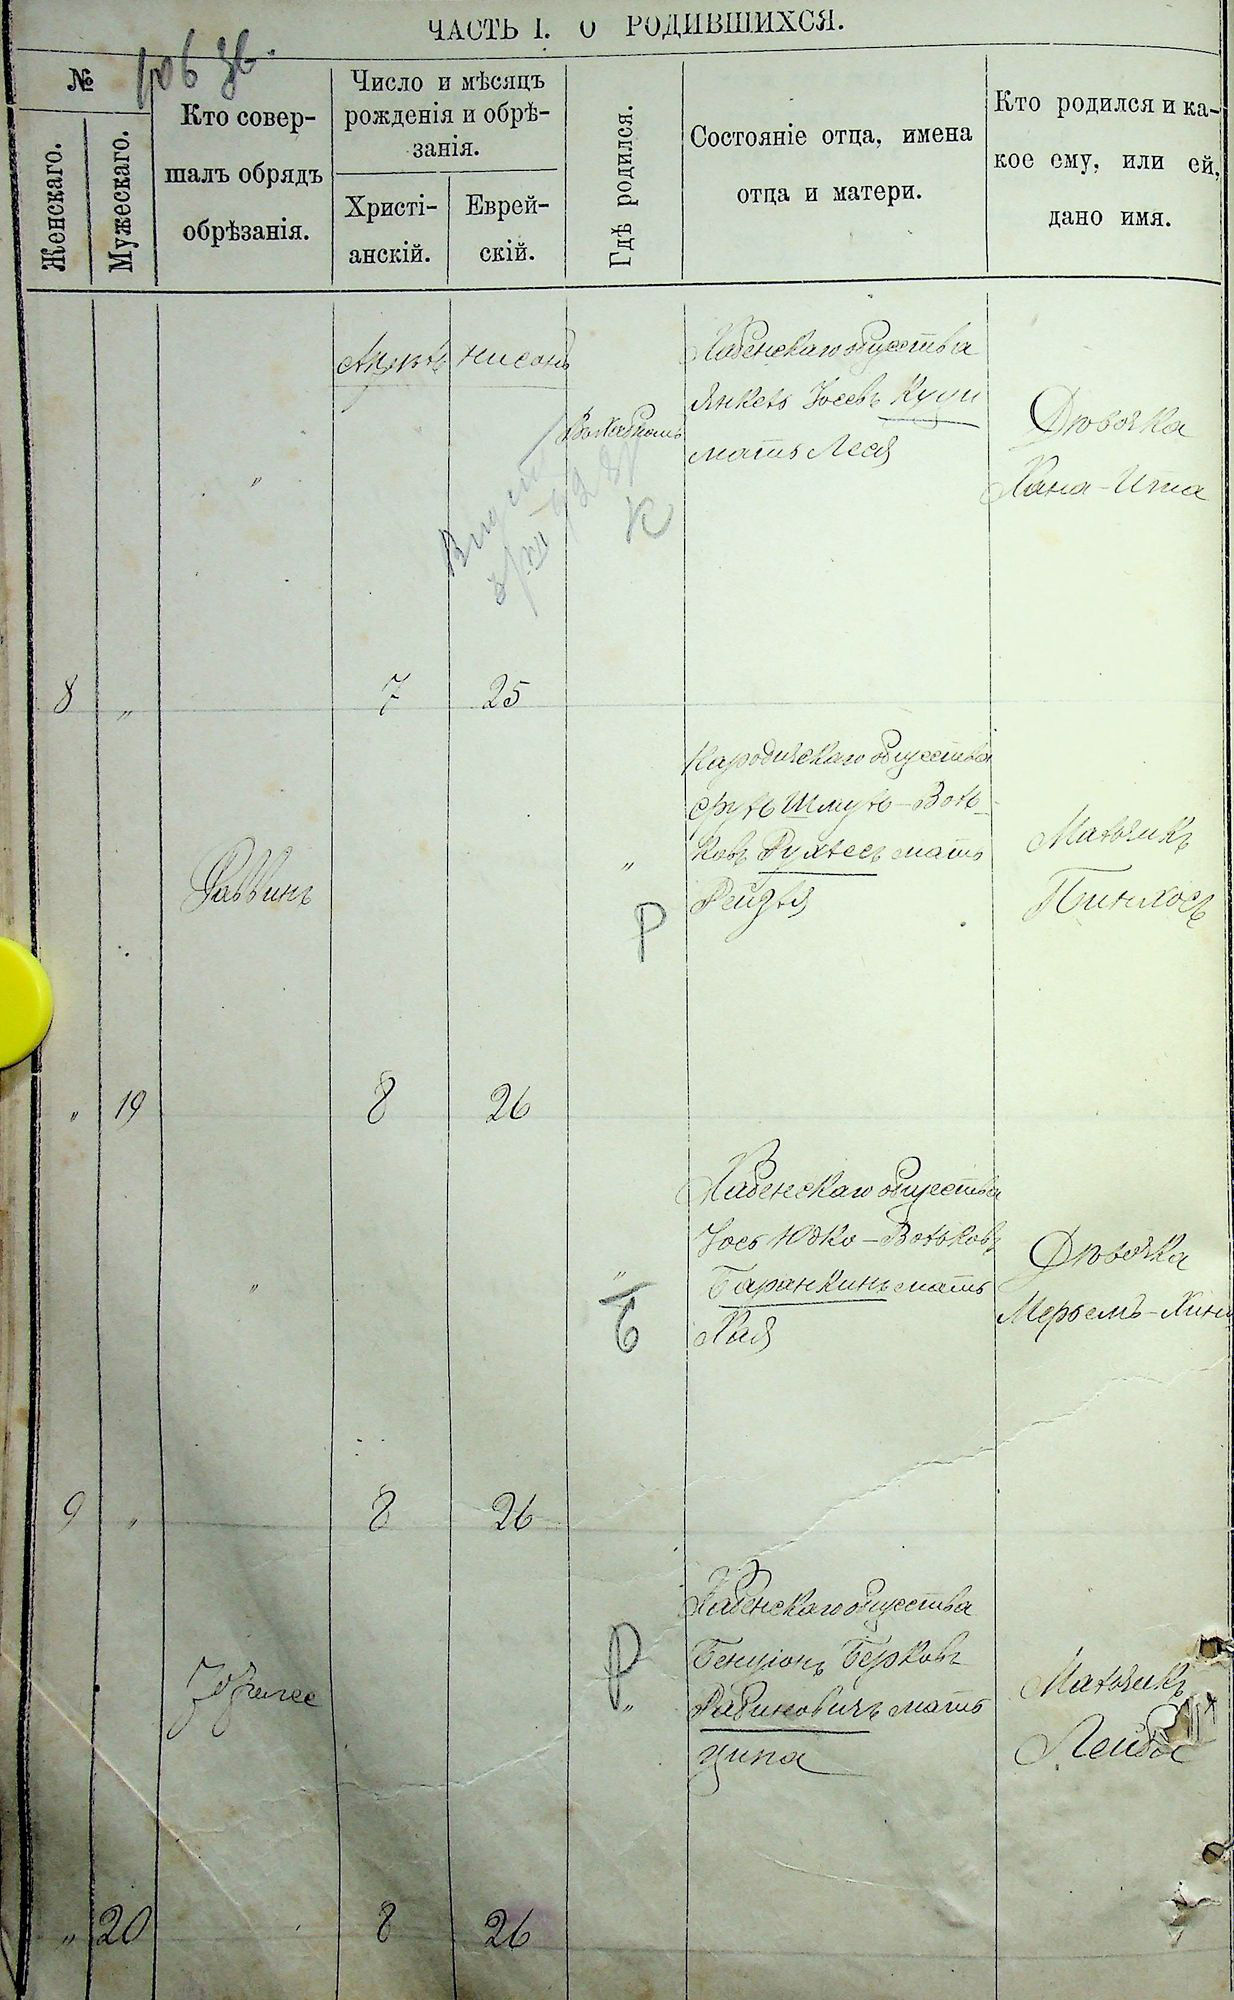 ЧАСТЬ I. О РОДИВШИХСЯ.
№
Женскаго.
Мужескаго.
Кто совер-
шалъ обрядъ
обрѣзанія.
Число и мѣсяцъ
рожденія и обрѣ-
занія.
Христі-
анскій.
Еврей-
скій.
Гдѣ родился.
Состояніе отца, имена
отца и матери.
Кто родился и ка-
кое ему, или ей,
дано имя.
Апрѣль
Нисонъ
"
К
Хабенскаго общества
Янкель Іосевъ
мать Лея
Дѣвочка
Хана-Ита
8 " 7 25
Раввинъ
"
Р
Народичскаго общества
Шмуль-Воль-
ковъ мать
Рейзля
Мальчикъ
Пинхосъ
" 19 8 26
"
"
Б
Хабенскаго общества
Іось Юдко-Вольковъ
Баранкинъ мать
Хая
Дѣвочка
Мерьемъ-Хина
9 " 8 26
Р
"
Хабенскаго общества
Бенціонъ Берковъ
Рабиновичъ мать
Ципа
Мальчикъ
Лейба
" 20 8 26